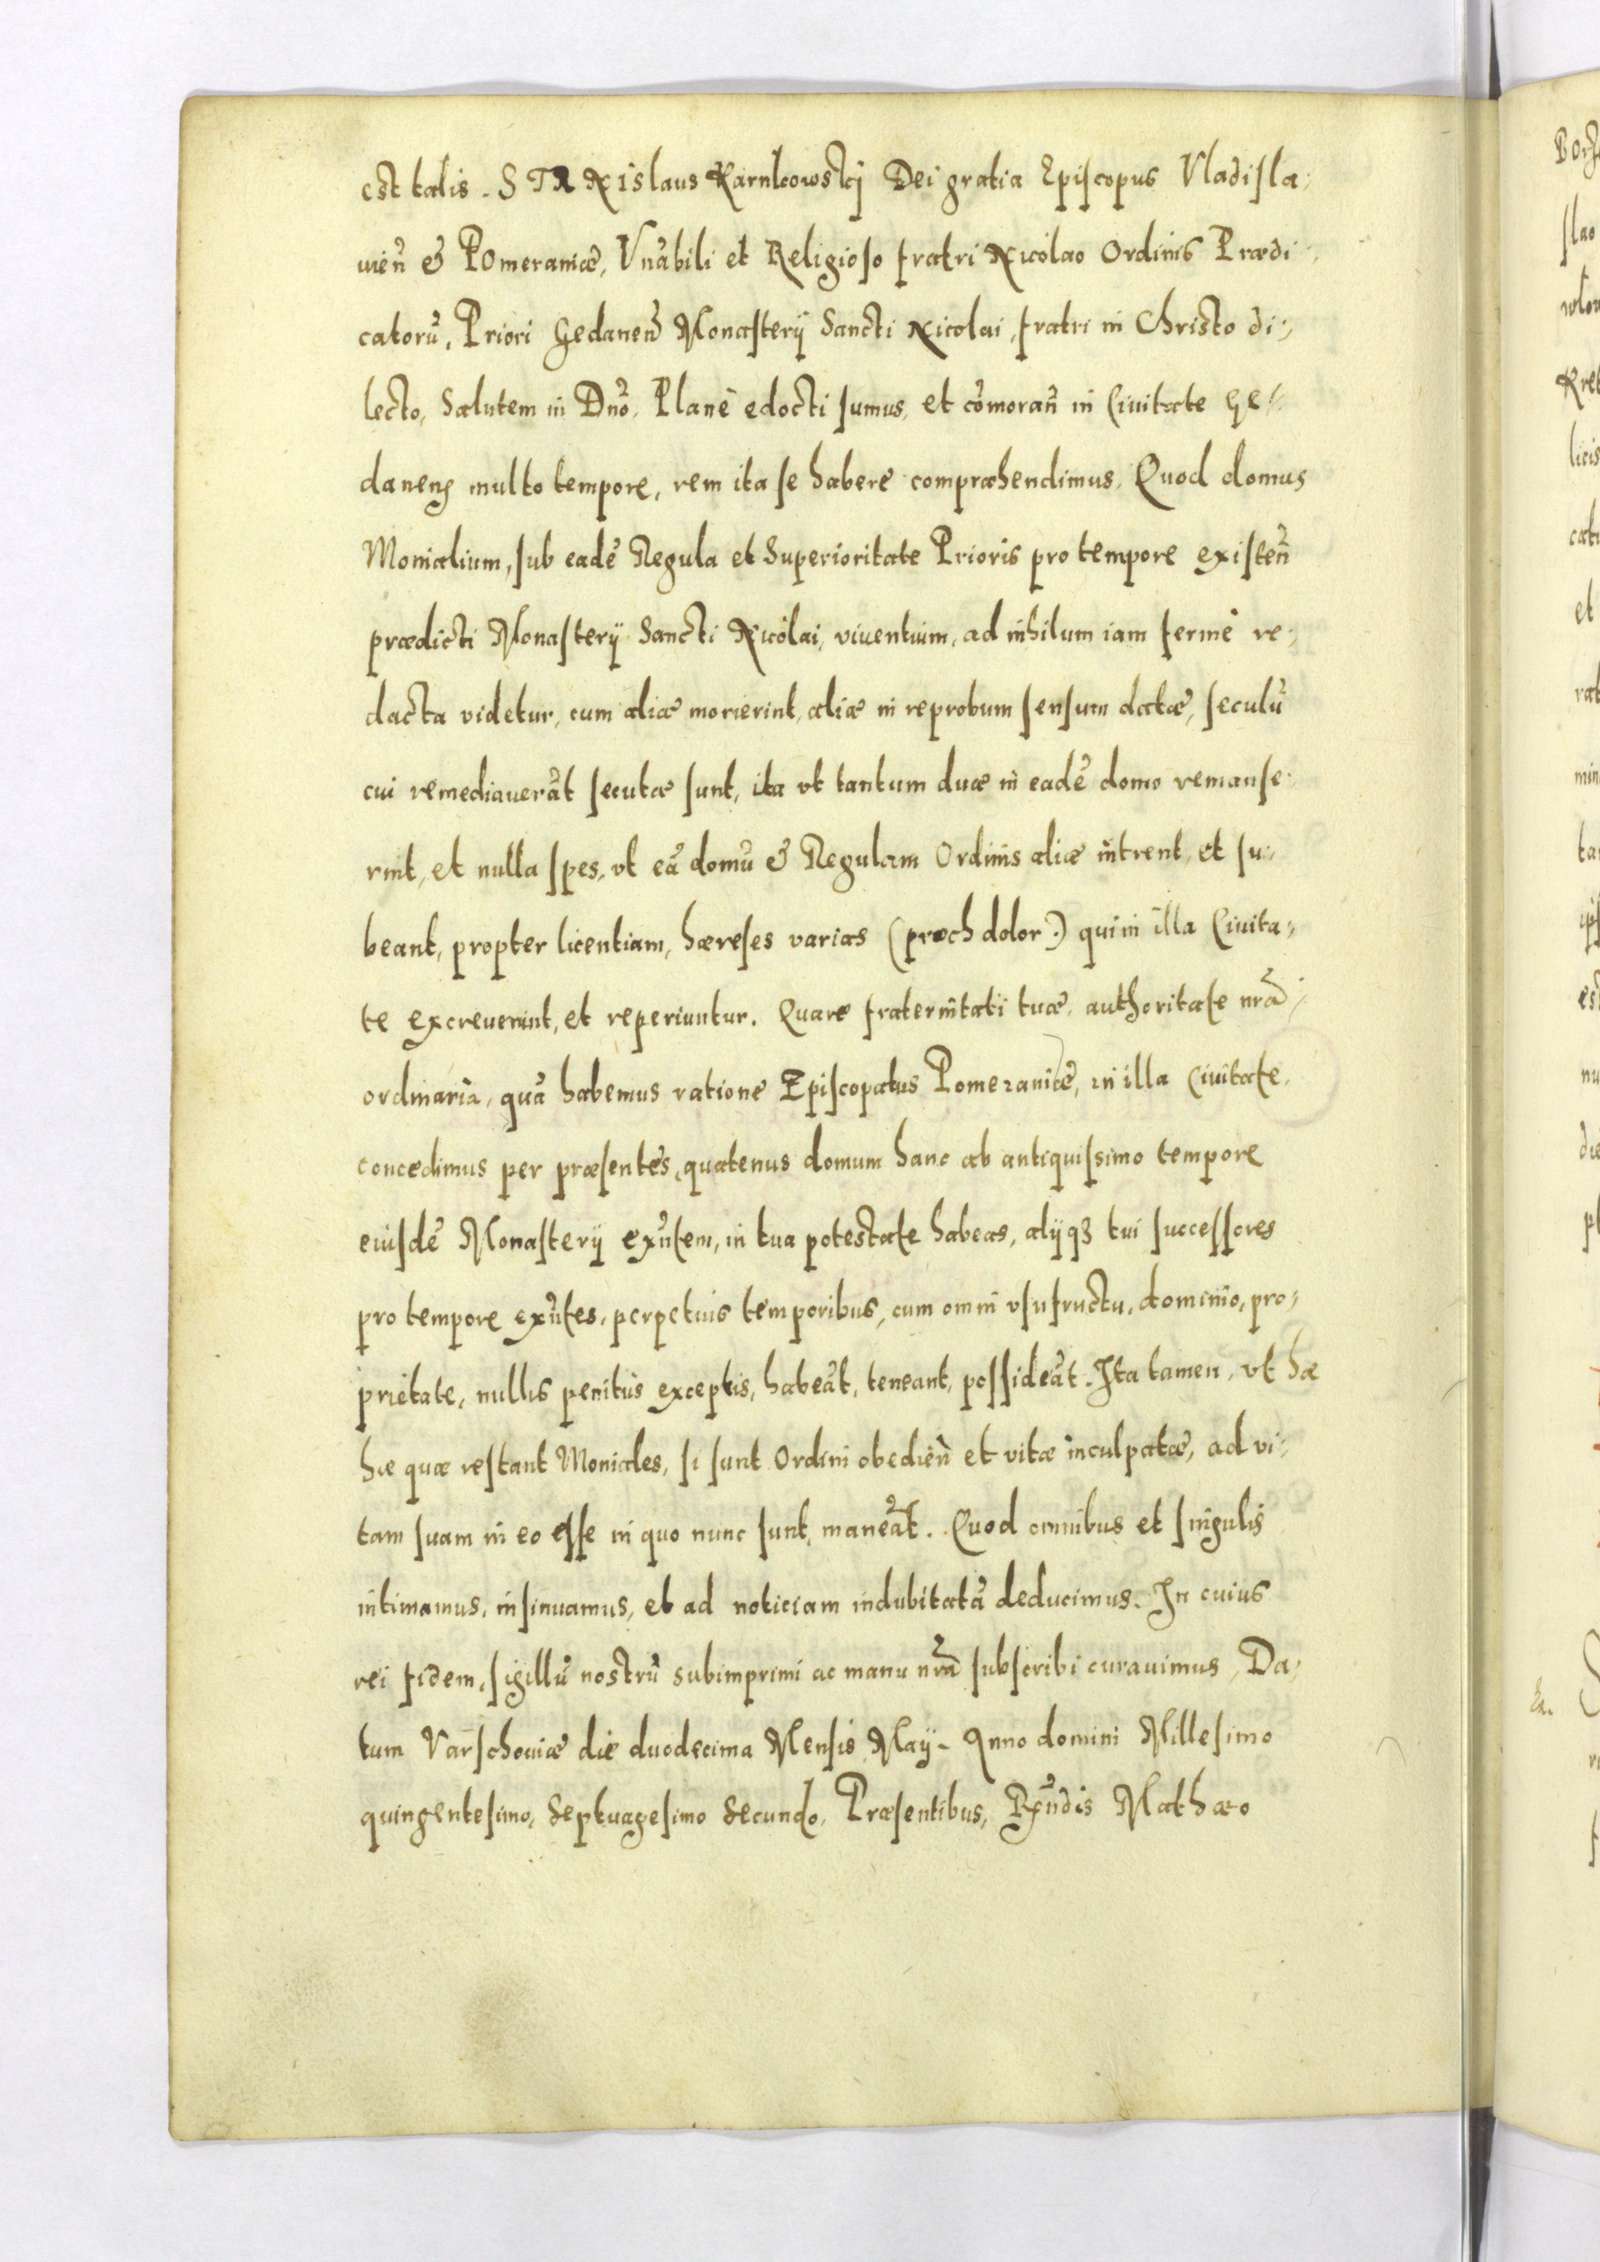 est talis. STANislaus Karnkowskij Dei gratia Episcopus Vladisla:
uien̄ & POmeraniæ, Vnãbili et Religioso fratri Nicolao Ordinis Prædi
catorũ, Priori Gedanen̄ Monasterij Sancti Nicolai, fratri in Christo di:
lecto, Salutem in Dnõ. Planè edocti sumus, et cõmoran̄ in Ciuitate Ge:
danens multo tempore, rem ita se habere compræhendimus. Quod domus
Monialium, sub eadẽ Regula et Superioritate Prioris pro tempore existen̄
prædicti Monasterij Sancti Nicolai, viuentium, ad nihilum iam fermè re:
dacta videtur, cum aliæ morierint, aliæ in reprobum sensum datæ, seculũ
cui remediauerãt secutæ sunt, ita vt tantum duæ in eadẽ domo remanse:
rint, et nulla spes, vt eã domũ & Regulam Ordinis aliæ intrent, et su:
beant, propter licentiam, hæreses varias (proch dolor.) qui in illa Ciuita:
te excreuerint, et reperiuntur. Quare fraternitati tuæ, authoritate nrã
ordinaria, quã habemus ratione Episcopatus Pomeraniæ, in illa Ciuitate.
concedimus per præsentes, quatenus domum hanc ab antiquissimo tempore
eiusdẽ Monasterij exñtem, in tua potestate habeas, alijqȝ tui successores
pro tempore exñtes, perpetuis temporibus, cum omni vsufructu, dominio, pro:
prietate, nullis penitus exceptis, habeãt, teneant, possideãt. Ita tamen, vt hæ
hæ quæ restant Moniales, si sunt Ordini obedien̄ et vitæ inculpatæ, ad vi:
tam suam in eo esse in quo nunc sunt, maneãt. Quod omnibus et singulis
intimamus, insinuamus, et ad noticiam indubitatã deducimus. In cuius
rei fidem, sigillũ nostrũ subimprimi ac manu nrã subscribi curauimus, Da:
tum Varschouiæ die duodecima Mensis Maij. Anno domini Millesimo
quingentesimo, Septuagesimo Secundo, Præsentibus, Rñdis Mathæo